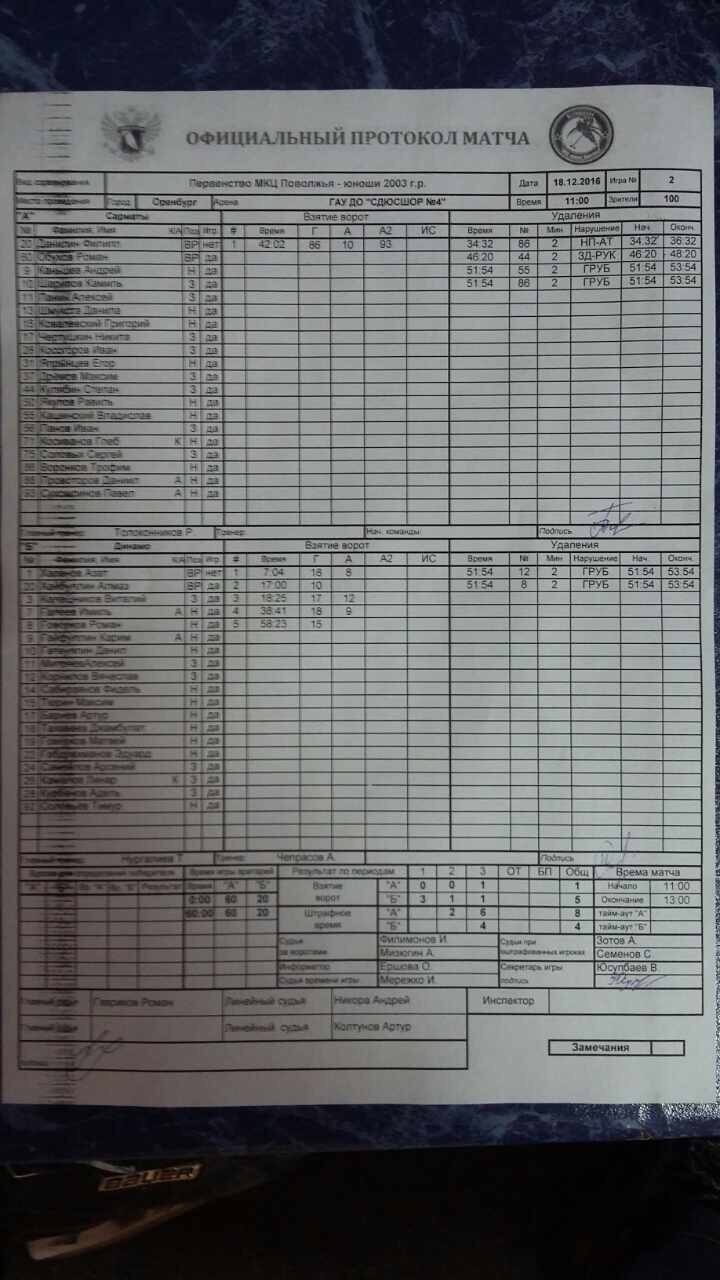 ОФИЦИАЛЬНЫЙ ПРОТОКОЛ МАТЧА
Вид соревнования Первенство МКЦ Поволжья - юноши 2003 г.р. Дата 18.12.2016 Игра № 2
Место проведения Город Оренбург Арена ГАУ ДО "СДЮСШОР №4" Время 11:00 Зрители 100
"А" Сарматы Взятие ворот Удаления
№ Фамилия, Имя К/А Поз Игр # Время Г А А2 ИС Время № Мин Нарушение Нач. Оконч.
20 Данилин Филипп ВР нет 1 42:02 86 10 93 34:32 86 2 НП-АТ 34:32 36:32
60 Обухов Роман ВР да 46:20 44 2 ЗД-РУК 46:20 48:20
9 Канышев Андрей Н да 51:54 55 2 ГРУБ 51:54 53:54
10 Шарипов Камиль З да 51:54 86 2 ГРУБ 51:54 53:54
11 Ланин Алексей З да
13 Данила Н да
Ковалевский Григорий Н да
17 Чертушкин Никита З да
Косогоров Иван З да
31 Егор Н да
37 Дрёмов Максим З да
44 Кулябин Степан З да
50 Якупов Равиль Н да
55 Кашинский Владислав Н да
Панов Иван З да
71 Косиванов Глеб К Н да
75 Соловых Сергей З да
86 Воронков Трофим Н да
Провоторов Даниил А Н да
93 Сухомлинов Павел А Н да
Главный тренер Толоконников Р. Тренер Нач. команды Подпись
"Б" Динамо Взятие ворот Удаления
№ Фамилия, Имя К/А Поз Игр # Время Г А А2 ИС Время № Мин Нарушение Нач. Оконч.
1 Азат ВР нет 1 7:04 18 8 51:54 12 2 ГРУБ 51:54 53:54
20 Хайбуллин Алмаз ВР да 2 17:00 10 51:54 8 2 ГРУБ 51:54 53:54
3 Калашников Виталий З да 3 18:25 17 12
Галеев Камиль А Н да 4 38:41 18 9
8 Говорков Роман Н да 5 58:23 15
9 Гайфуллин Карим А Н да
10 Данил Н да
11 Алексей З да
12 Корнилов Вячеслав З да
14 Сабирзянов Фидель Н да
15 Тюрин Максим Н да
17 Барнев Артур Н да
18 Джамбулат Н да
19 Говорков Матвей Н да
Эдуард Н да
24 Арсений З да
Камалов Линар К З да
Курбанов Адель З да
92 Соловьев Тимур Н да
Главный тренер Нургалиев Т. Тренер Чепрасов А. Подпись
Время игры вратарей Результат по периодам 1 2 3 ОТ БП Общ Время матча
"А" "Б" Вр. "А" Вр. "Б" Результат Время "А" "Б" Взятие ворот "А" 0 0 1 1 Начало 11:00
0:00 60 20 "Б" 3 1 1 5 Окончание 13:00
60:00 60 20 Штрафное время "А" 2 6 8 тайм-аут "А"
"Б" 4 4 тайм-аут "Б"
Судьи за воротами Филимонов И. Судьи при оштрафованных игроках Зотов А.
Мизюгин А. Семенов С.
Информатор Ершова О. Секретарь игры Юсупбаев В.
Судья времени игры Мережко И. подпись
Главный судья Гавриков Роман Линейный судья Никора Андрей Инспектор
Главный судья Линейный судья Колтунов Артур
Замечания
BAUER